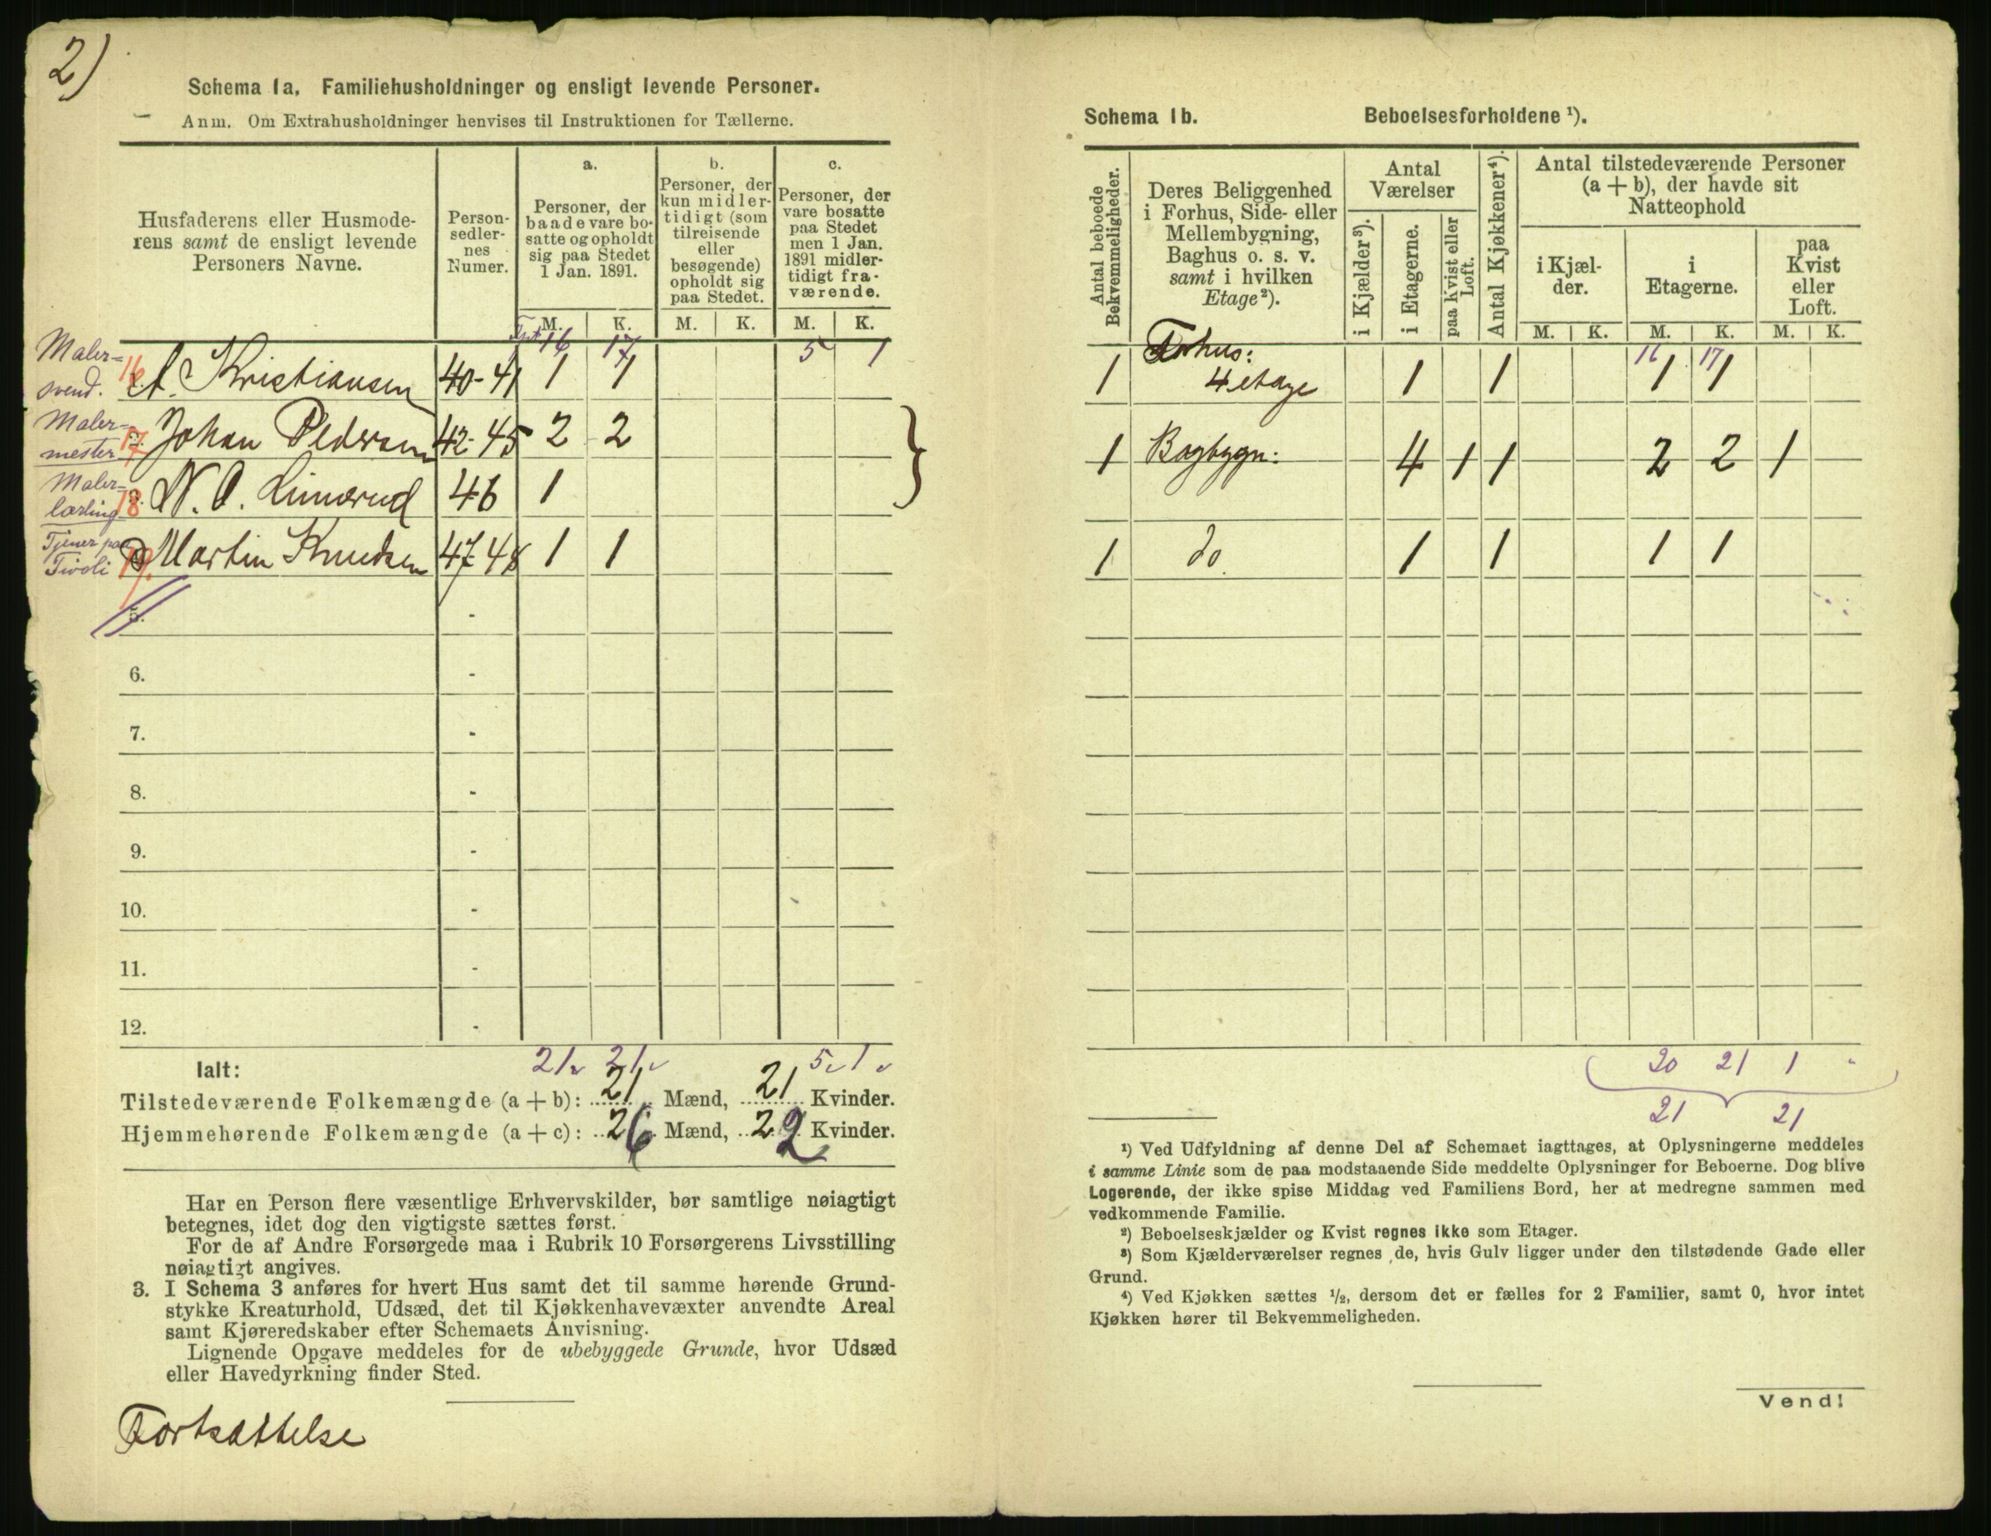 2)
Schema 1a. Familiehusholdninger og ensligt levende Personer.
Anm. Om Extrahusholdninger henvises til Instruktionen for Tællerne.
Husfaderens eller Husmode-
rens samt de ensligt levende
Personers Navne.
Person-
sedler-
nes
Numer.
a.
Personer, der
baade vare bo-
satte og opholdt
sig paa Stedet
1 Jan. 1891.
b.
Personer, der
kun midler-
tidigt (som
tilreisende
eller
besøgende)
opholdt sig
paa Stedet.
c.
Personer, der
vare bosatte
paa Stedet
men 1 Jan.
1891 midler-
tidigt fra-
værende.
M. K. M. K. M. K.
16 17 5 1
Maler-
svend. 16 A. Kristiansen 40-41 1 1
Maler-
mester 17 Johan Pedersen 42-45 2 2
Maler-
lærling 18 N. O. Limerud 46 1
Tjener paa
Tivoli 19. Martin Knudsen 47-48 1 1
5. -
6. -
7. -
8. -
9. -
10. -
11. -
12. -
21 21 5 1
Ialt:
Tilstedeværende Folkemængde (a + b): 21 Mænd, 21 Kvinder.
Hjemmehørende Folkemængde (a + c): 26 Mænd, 22 Kvinder.
Har en Person flere væsentlige Erhvervskilder, bør samtlige nøiagtigt
betegnes, idet dog den vigtigste sættes først.
For de af Andre Forsørgede maa i Rubrik 10 Forsørgerens Livsstilling
nøiagtigt angives.
3. I Schema 3 anføres for hvert Hus samt det til samme hørende Grund-
stykke Kreaturhold, Udsæd, det til Kjøkkenhavevæxter anvendte Areal
samt Kjøreredskaber efter Schemaets Anvisning.
Lignende Opgave meddeles for de ubebyggede Grunde, hvor Udsæd
eller Havedyrkning finder Sted.
Fortsættelse
Schema 1b. Beboelsesforholdene ¹).
Antal beboede
Bekvemmeligheder.
Deres Beliggenhed
i Forhus, Side- eller
Mellembygning,
Baghus o. s. v.
samt i hvilken
Etage ²).
Antal
Værelser
i Kjælder ³).
i Etagerne.
paa Kvist eller
Loft.
Antal Kjøkkener ⁴).
Antal tilstedeværende Personer
(a + b), der havde sit
Natteophold
i Kjæl-
der.
i
Etagerne.
paa
Kvist
eller
Loft.
M. K. M. K. M. K.
16 17
1 Forhus:
4 etage 1 1 1 1
1 Bagbygn: 4 1 1 2 2 1
1 do. 1 1 1 1
20 21 1
21 21
¹) Ved Udfyldning af denne Del af Schemaet iagttages, at Oplysningerne meddeles
i samme Linie som de paa modstaaende Side meddelte Oplysninger for Beboerne. Dog blive
Logerende, der ikke spise Middag ved Familiens Bord, her at medregne sammen med
vedkommende Familie.
²) Beboelseskjælder og Kvist regnes ikke som Etager.
³) Som Kjælderværelser regnes de, hvis Gulv ligger under den tilstødende Gade eller
Grund.
⁴) Ved Kjøkken sættes ½, dersom det er fælles for 2 Familier, samt 0, hvor intet
Kjøkken hører til Bekvemmeligheden.
Vend!